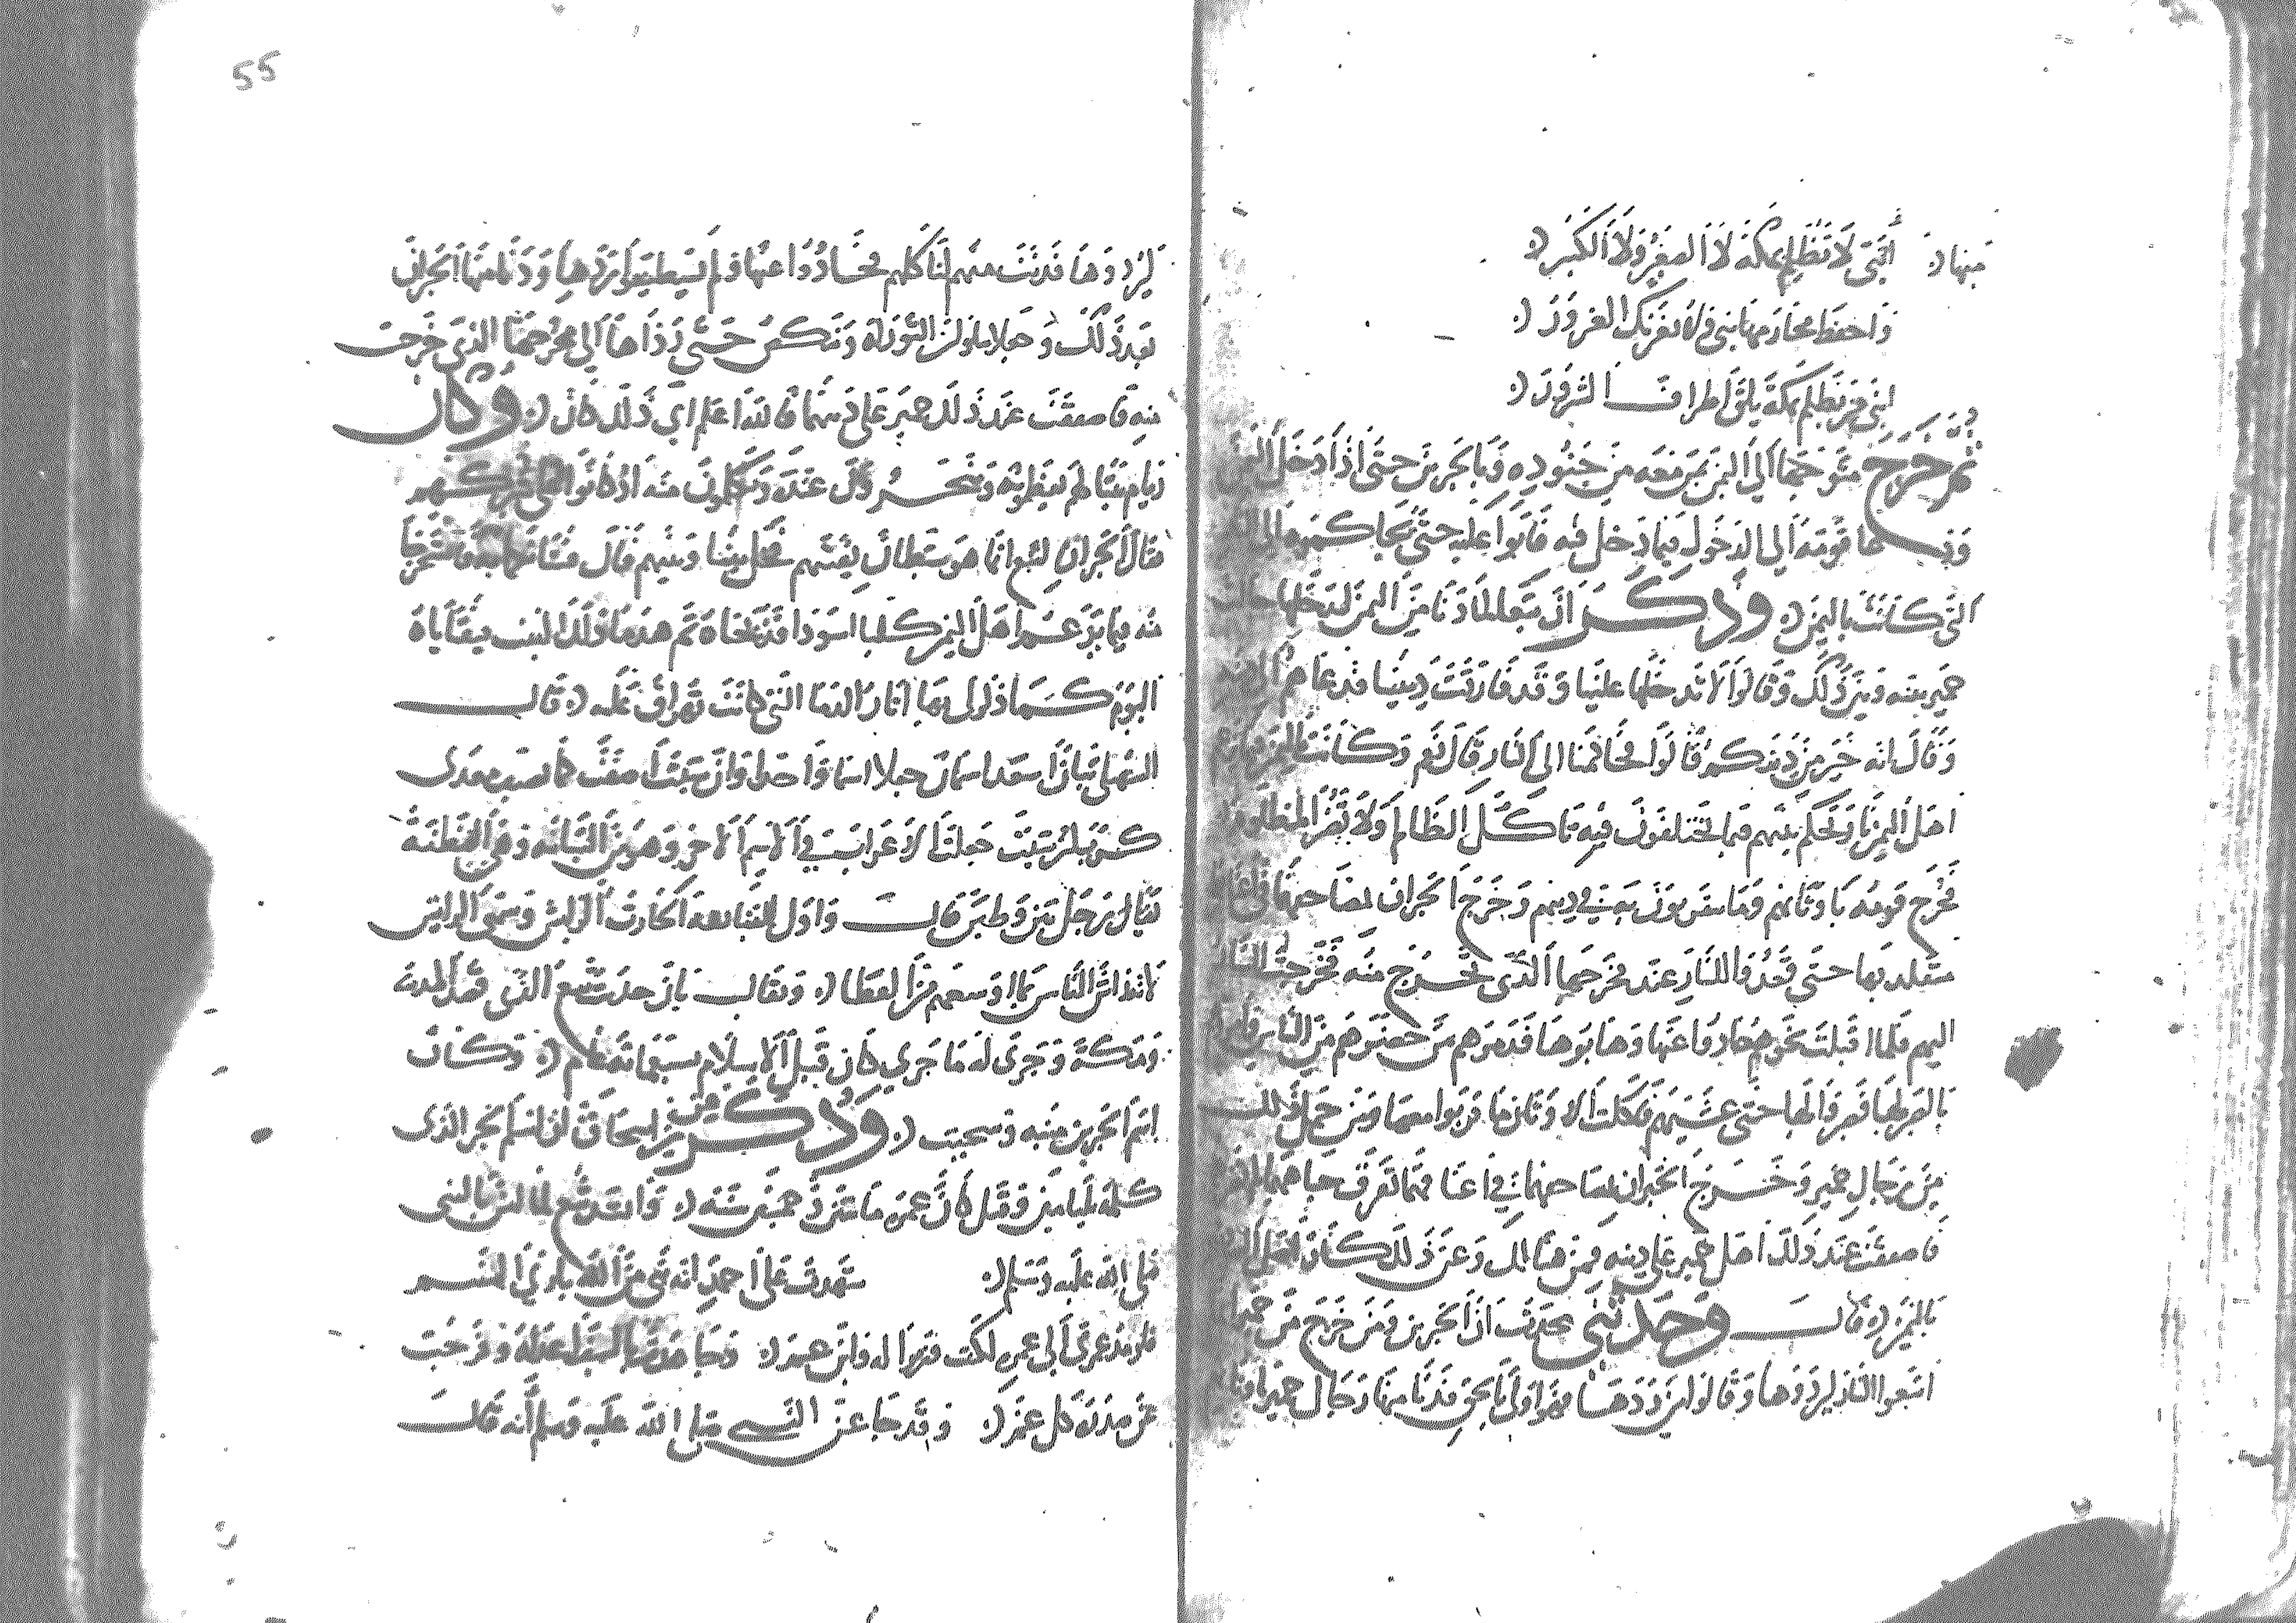 منها ابني لا تظلم بمكة لا الصغير ولا الكبير
واحفظ محارمها بني ولا يغرنك الغرور
ابني من يظلم بمكة يلق اطراف الشرور
ثم خرج متوجها الى اليمن بمن معه من جنوده وبالحبرين حتى اذا دخل اليمن
دعا قومه الى الدخول فيما دخل فيه فابوا عليه حتى يحاكموه الى النار
التي كانت باليمن وذكر ان تبعا لما دنا من اليمن ليدخلها حالت
حمير بينه وبين ذلك وقالوا لا تدخلها علينا وقد فارقت ديننا فدعاهم الى دينه
وقال انه خير من دينكم قالوا فحاكمنا الى النار قال نعم وكانت باليمن
اهل اليمن نار تحكم بينهم فيما يختلفون فيه تاكل الظالم ولا تضر المظلوم
فخرج قومه باوثانهم وما يتقربون به في دينهم وخرج الحبران بمصاحفهما في اعناقهما
متقلديها حتى قعدوا للنار عند مخرجها الذي تخرج منه فخرجت النار
اليهم فلما اقبلت نحوهم حادوا عنها وهابوها فذمرهم من حضرهم من الناس وامروهم
بالصبر لها فصبروا لها حتى غشيتهم فاكلت الاوثان وما قربوا معها ومن حمل ذلك
من رجال حمير وخرج الحبران بمصاحفهما في اعناقهما تعرق جباههما لم تضرهما
فاصفقت عند ذلك حمير على دينه فمن هنالك وعن ذلك كان اصل اليهودية
باليمن قال وحدثني محدث ان الحبرين ومن خرج من حمير
اتبعوا النار ليردوها وقالوا من ردها فهو اولى بالحق فدنا منها رجال حمير باوثانهم
ليردوها فدنت منهم لتاكلهم فحادوا عنها ولم يستطيعوا ردها ودنا منها الحبران
بعد ذلك وجعلا يتلوان التوراة وتنكص حتى رداها الى مخرجها الذي خرجت
منه فاصفقت عند ذلك حمير على دينهما فالله اعلم اي ذلك كان وكان
ريام بيتا لهم يعظمونه وينحرون عنده ويكلمون منه اذ كانوا على شركهم
فقال الحبران لتبع انما هو شيطان يفتنهم فخل بيننا وبينه قال فشانكما به فاستخرجا
منه فيما يزعم اهل اليمن كلبا اسود فذبحاه ثم هدما ذلك البيت فبقاياه
اليوم كما ذكر لي بها اثار الدما التي كانت تهراق عليه قال
السهيلي تبان اسعد اسمان جعلا اسما واحدا وان شئت اضفت كما تضيف معدي
كرب وان شئت جعلت الاعراب في الاسم الاخر وهو من التبانة وهي الفطنة
يقال رجل تبن وطبن قال واول التبابعة الحارث الرايش وسمي الرايش
لانه راش الناس بما اوسعهم من العطا ويقال بان حديث تبع الذي قصد المدينة
ومكة وجرى له ما جرى كان قبل الاسلام بسبعماية عام وكان
اسم الحبرين منبه وسحيت وذكر عن ابن اسحاق ان اسم الحبر الذي
كلمه بليامين وقيل كان عمره مايتين وخمسين سنة وانشد تبع لما امن بالنبي
صلى الله عليه وسلم شهدت على احمد انه نبي من الله باري النسم
فلو مد عمري الى عمره لكنت وزيرا له وابن عم وجاهدت بالسيف اعداه وفرجت
عن صدره كل غم وقد جا عن النبي صلى الله عليه وسلم انه قال
55